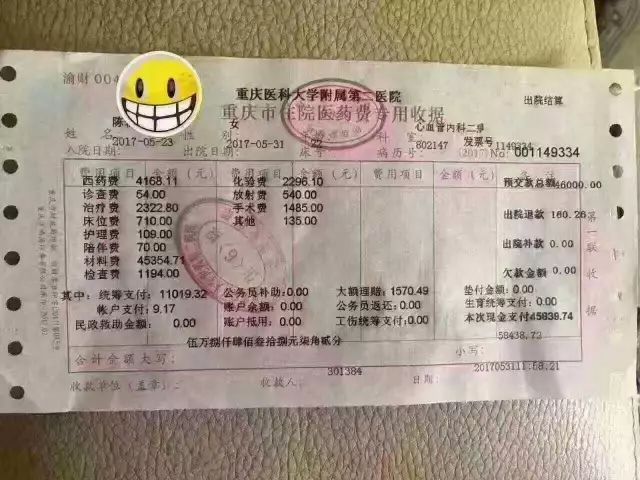 渝财 004
重庆医科大学附属第二医院
出院结算
重庆市住院医药费专用收据
姓名 陈 性别 女 科室 心血管内科二病 发票号 1149334
入院日期 2017-05-23 出院日期 2017-05-31 床号 22 病历号 802147 (2017)No:001149334
费用项目 金额(元) 费用项目 金额(元) 费用项目 金额(元) 备注
西药费 4168.11 化验费 2296.10 预交款总额 46000.00
诊查费 54.00 放射费 540.00
治疗费 2322.80 手术费 1485.00 出院退款 160.26
床位费 710.00 其他 135.00
护理费 109.00 出院补款 0.00
陪伴费 70.00
材料费 45354.71 欠款金额 0.00
检查费 1194.00
其中: 统筹支付: 11019.32 公务员补助: 0.00 大额理赔: 1570.49 垫付金额: 0.00
帐户支付: 9.17 账户余额: 0.00 公务员退还: 0.00 生育统筹支付: 0.00
民政救助金额: 0.00 账户抵用: 0.00 工伤统筹支付: 0.00 本次现金支付 45839.74
伍万捌仟肆佰叁拾捌元柒角贰分 58438.72
合计金额大写: 小写:
301384 20170531 11:58:21
收款单位(盖章): 收款人: 日期:
第一联 收据